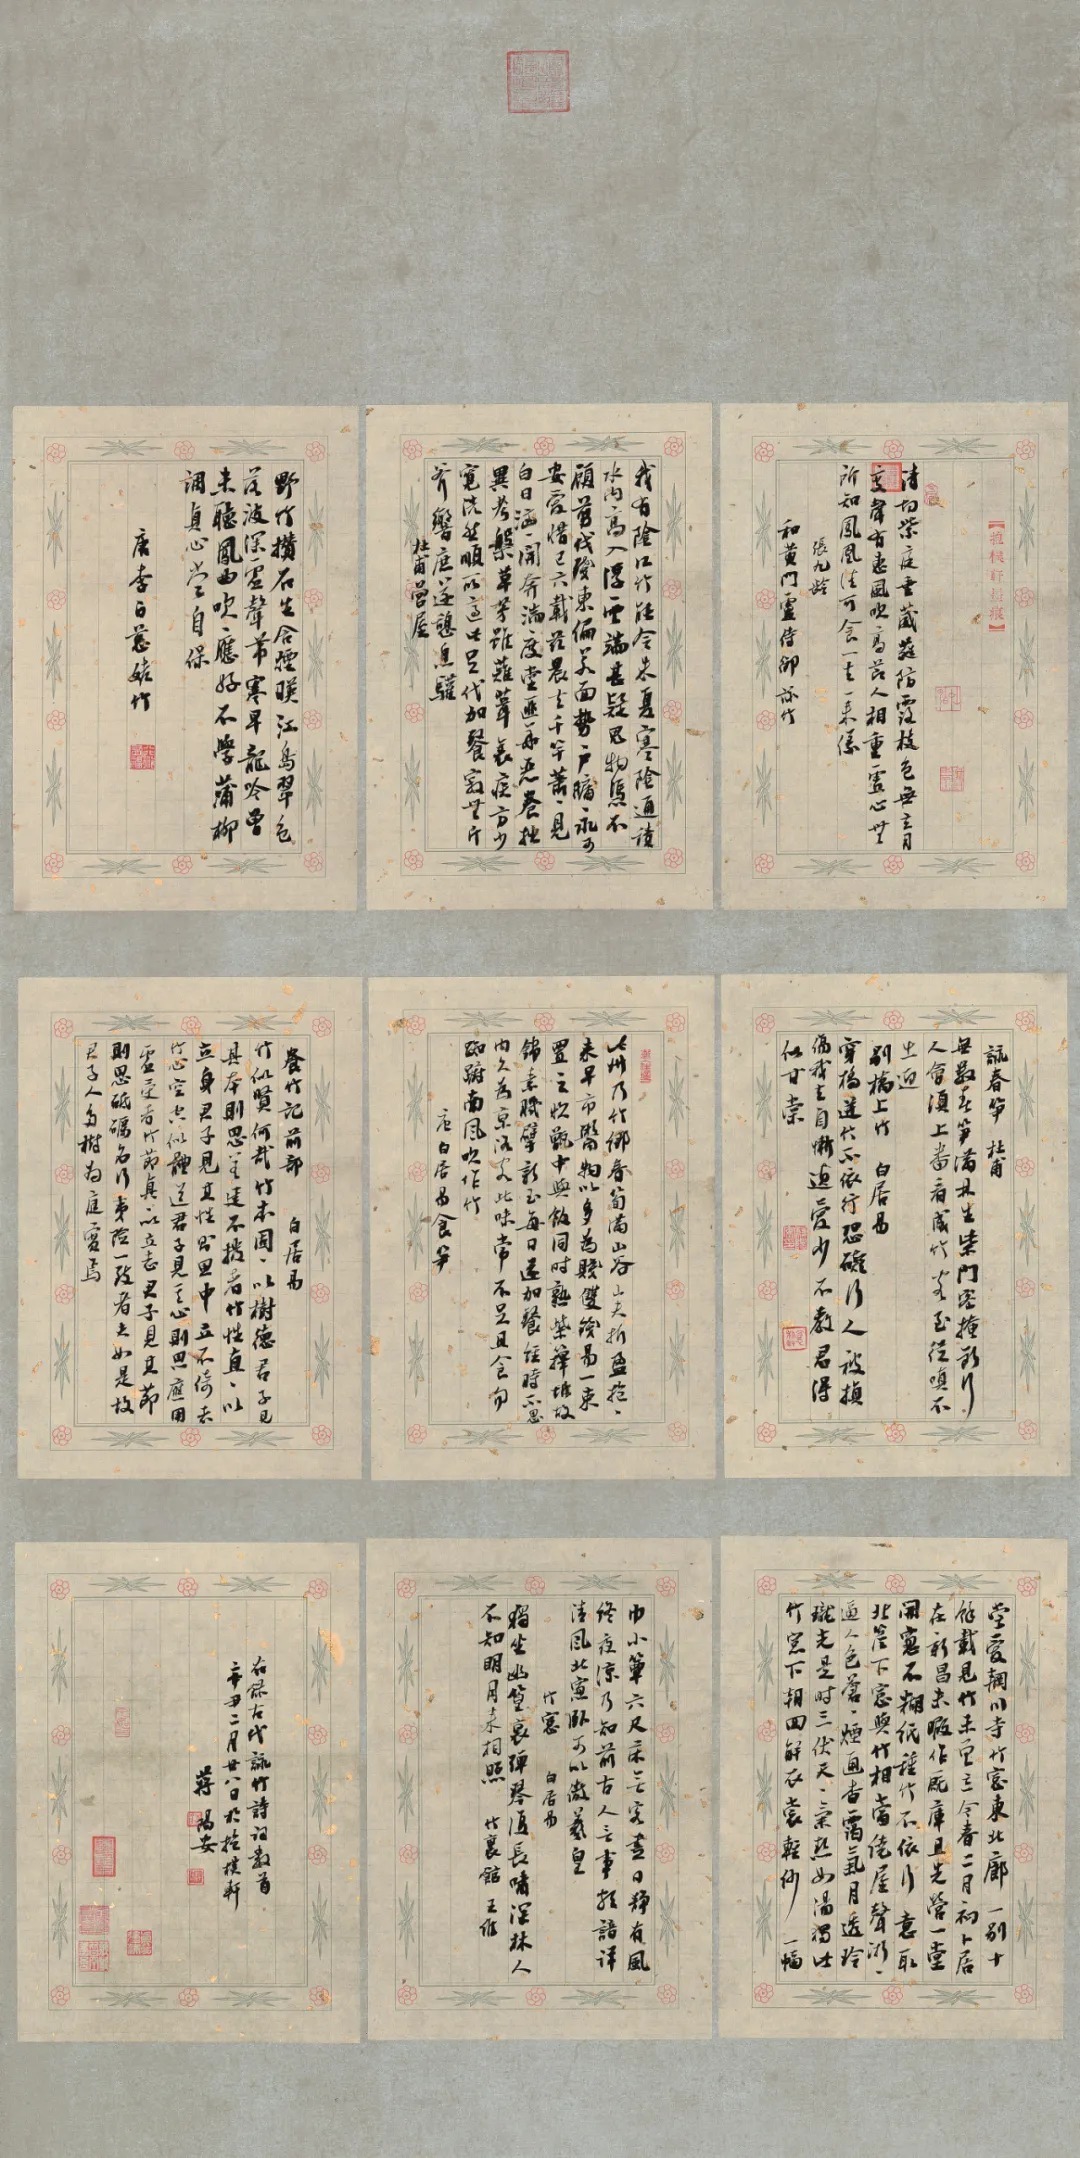 清切紫庭垂葳蕤防露枝色無玄月
變聲有惠風吹高節人相重虛心世
所知鳳凰佳可食一去一來儀
張九齡
和黃門盧侍御詠竹
我有陰江竹能令朱夏寒陰通積
水內高入浮雲端甚疑鬼物憑不
顧翦伐殘東偏若面勢戶牖永可
安愛惜已六載茲晨去千竿蕭蕭見
白日洶洶開奔湍度堂匪華麗養拙
異考槃草茅雖薙葦衰疾方少
寬洗然順所適此足代加餐寂無斤
斧響庶遂憩息歡
杜甫營屋
野竹攢石生含煙映江島翠色
落波深虛聲帶寒早龍吟曾
未聽鳳曲吹應好不學蒲柳
調貞心嘗自保
唐李白慈姥竹
詠春筍 杜甫
無數春筍滿林生柴門密掩斷行
人會須上番看成竹客至從嗔不
出迎
別橋上竹 白居易
穿橋迸竹不依行恐礙行人被損
傷我去自慚遺愛少不教君得
似甘棠
此州乃竹鄉春筍滿山谷山夫折盈抱抱
來早市鬻物以多為賤雙錢易一束
置之炊甑中與飯同時熟紫籜坼故
錦素肌擘新玉每日遂加餐經時不思
肉久為京洛客此味常不足且食勿
踟躕南風吹作竹
唐白居易食筍
養竹記前部 白居易
竹似賢何哉竹本固固以樹德君子見
其本則思善建不拔者竹性直直以
立身君子見其性則思中立不倚者
竹心空空似體道君子見其心則思應用
虛受者竹節貞貞以立志君子見其節
則思砥礪名行夷險一致者夫如是故
君子人多樹為庭實焉
嘗愛輞川寺竹窗東北廊一別十
餘載見竹未曾忘今春二月初卜居
在新昌未暇作廄庫且先營一堂
開窗不糊紙種竹不依行意取
北簷下窗與竹相當繞屋聲淅淅
逼人色蒼蒼煙通杳靄氣月透玲
瓏光是時三伏天天氣熱如湯獨此
竹窗下朝回解衣裳輕紗一幅
巾小簟六尺床無客盡日靜有風
終夜涼乃知前古人言事頗諳詳
清風北窗臥可以傲羲皇
竹窗 白居易
獨坐幽篁裏彈琴復長嘯深林人
不知明月來相照 竹裏館 王維
右錄古代詠竹詩詞數首
辛丑二月廿八日於抱樸軒
蔣陽安